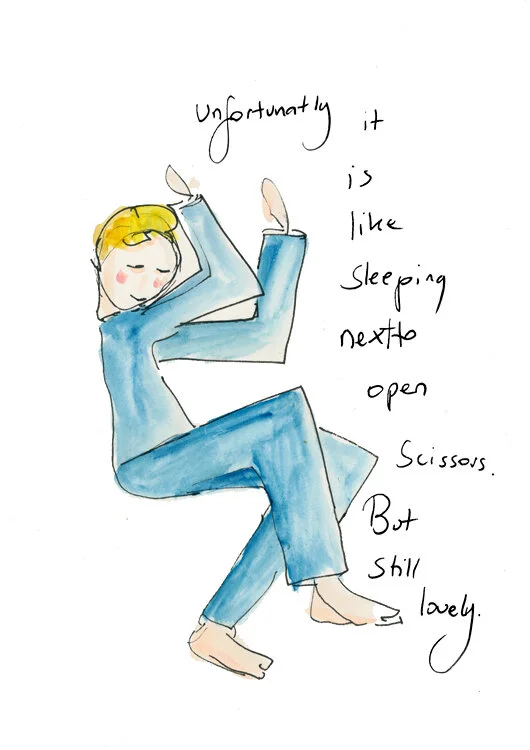 Unfortunatly it
is
like
sleeping
next to
open
scissors.
But
still
lovely.